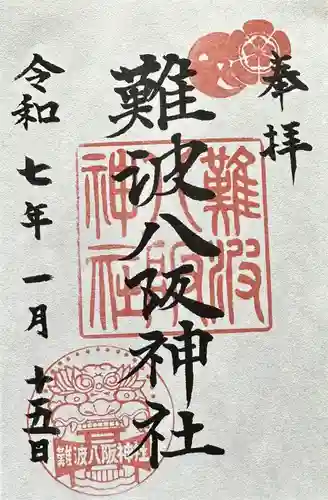 奉拝
難波八阪神社
令和七年一月十五日
難波八阪神社
難波八阪神社